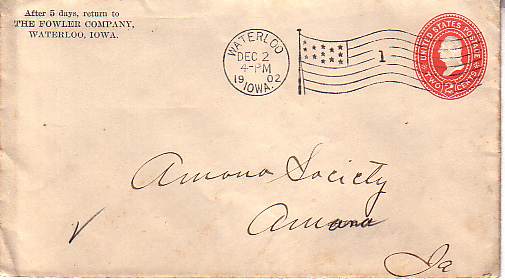 After 5 days, return to
THE FOWLER COMPANY,
WATERLOO, IOWA.
WATERLOO
DEC 2
4-PM
1902
IOWA.
1
UNITED STATES POSTAGE
TWO 2 CENTS
Amana Society
Amana
Ia